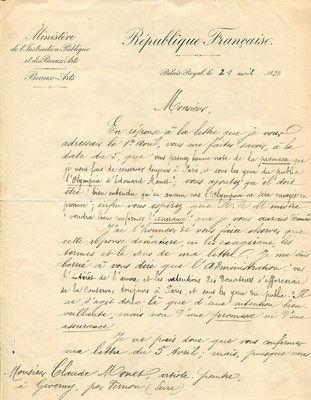 Ministère
de l'Instruction Publique
et des Beaux-Arts
Beaux-Arts
République Française.
Palais-Royal, le 21 avril 1890
Monsieur
En réponse à la lettre que je vous
adressais le 1er avril, vous me faites savoir, à la
date du 5, que vous prenez bonne note de la promesse que
vous fais de conserver toujours à Paris, et sous les yeux du public
"l'Olympia d'Edouard Manet" vous ajoutez qu'il doit
être "bien entendu qu'en aucun cas l'Olympia ne sera envoyée en
province; enfin vous espérez que M. le Ministre
"voudra bien confirmer l'assurance" que je vous aurais donnée
J'ai l'honneur de vous faire observer que
cette réponse dénature, en les exagérant, les
termes et le sens de ma lettre. Je me suis
borné à vous dire que l'Administration
l'intérêt de l'œuvre et les intentions des Donateurs s'efforcera
de la conserver toujours à Paris, et sous les yeux du public. Il
ne s'agit donc là que d'une intention bien
veillante, mais non d'une promesse ni d'une
assurance.
Je ne puis donc que vous confirmer
ma lettre du 5 Avril; mais, puisque vous
Monsieur Claude Monet artiste peintre,
à Giverny, par Vernon (Eure).